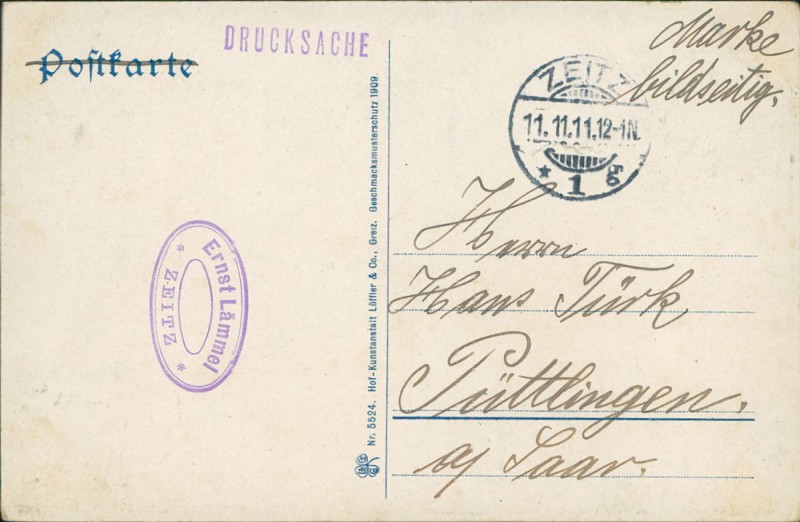 Postkarte
DRUCKSACHE
Marke
bildseitig.
ZEITZ
11.11.11.12-1N.
* 1 g
Ernst Lämmel
* ZEITZ *
Nr. 5524. Hof-Kunstanstalt Löffler & Co., Greiz. Geschmacksmusterschutz 1909.
Herrn
Hans Türk,
Püttlingen.
a/ Saar.